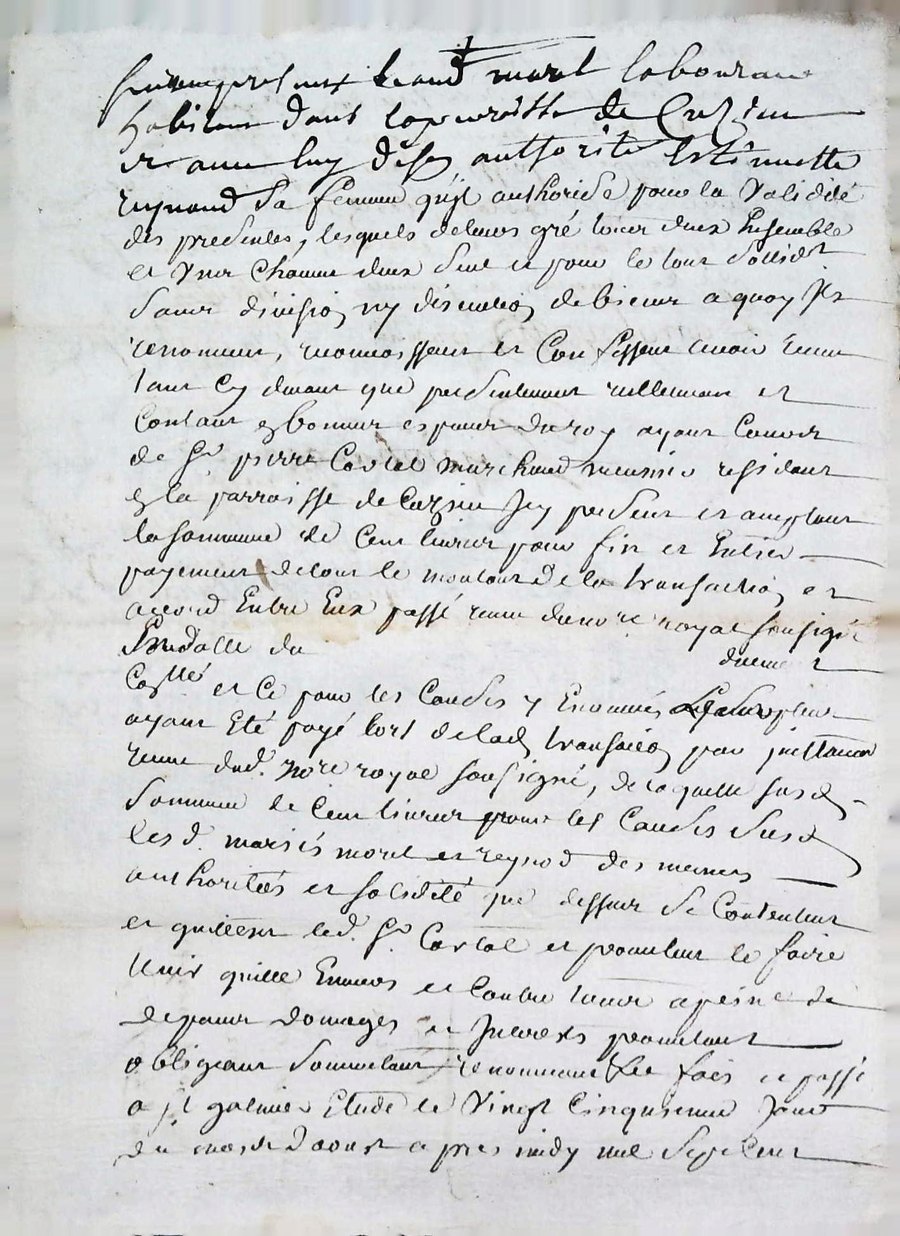 furent presents Leonard morel laboureur
habitant dans la parroisse de Cuzieu
et avec luy de son authorité Estiennette
reynaud Sa femme qu'jl authorise pour la Validité
des presentes, lesquels de leurs gré tous deux Ensemble
et Un Chacun deux Seul et pour le tout Sollidt
Sans division ny discution de biens a quoy jls
renoncent, reconnoissent et Confessent avoir receu
tant Cy devant que presentement reellement et
Contant en bonnes especes du roy ayant Cours
de Sr. pierre Costel marchand meusnier residant
en la parroisse de Cuzieu Icy present et acceptant
la Somme de Cent livres pour fin et Entier
payement de tout le montant de la transaction et
accord Entre Eux passé receu du nore royal soussigné
du
et Ce pour les Causes y Enoncés
ayant Eté payé lors de lad. transaction par quittance
receue dud. nore royal soussigné, de laquelle susd.
Somme de Cent livres pour les Causes Susd.
les d. mariés morel et reynod des memes
authorités et solidité que dessus Se Contentent
et quittent led. Sr. Costel et promettent le faire
tenir quitte Envers et Contre tous a peine de
depens domages et Interests promettant
obligeant Soumettant renonceant &c fait et passé
a st galmier Etude le Vingt Cinquieme Jour
du mois d'aoust apres midy mil Sept Cent